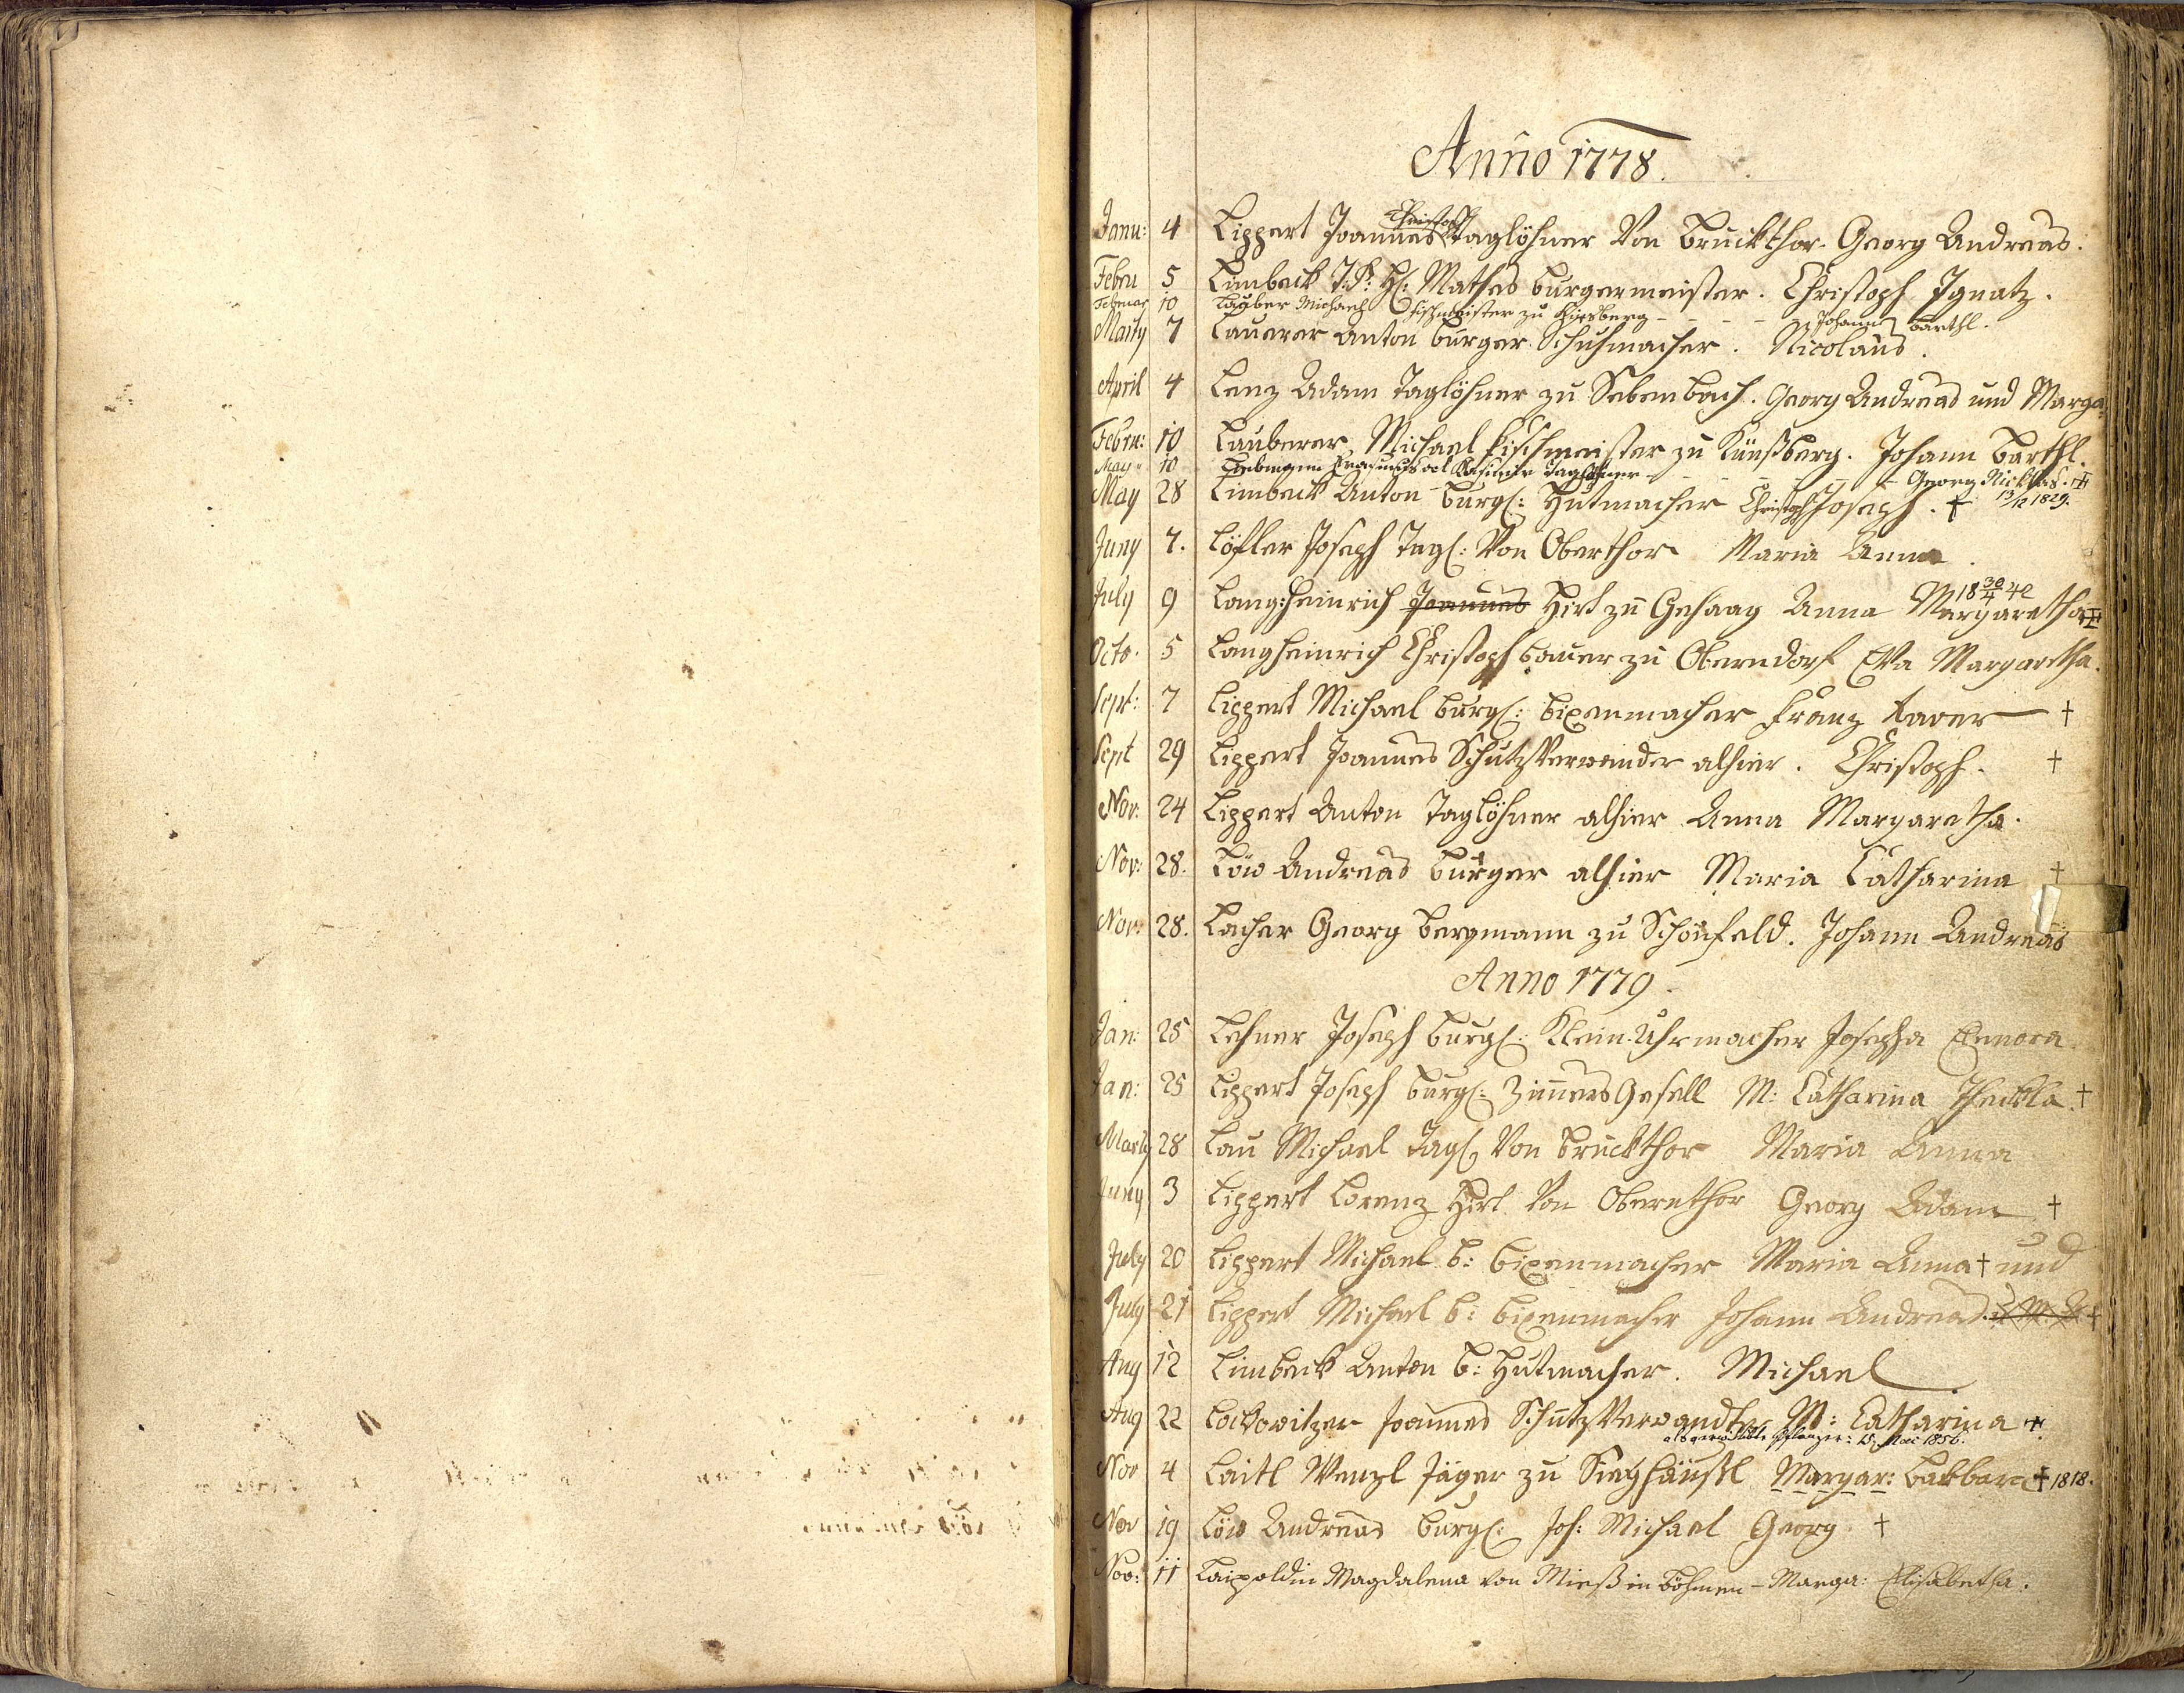 Anno 1778.
Janu: 4 Lippert Joannes Christoph Taglöhner Von Bruckthor. Georg Andreas.
Febru 5 Limbeck T: H: Mathes burgermeister. Christoph Ignatz.
Februar 10 Tauber Michael Fischmeister zu - - - Johann Barthl.
Marty 7 Lauerer Anton burger Schuhmacher. Nicolaus.
April 4 Lenz Adam Taglöhner zu Sebenbach. Georg Andreas und Marga
Febru: 10 Lauberer Michael Fischmeister zu Künßberg. Johann Barthl.
May 10 Taglöhner - - - Georg Nicklas.
May 28 Limbeck Anton burgl: Hutmacher Christoph Joseph. † 13/12 1829.
Juny 7. Löfler Joseph Tagl: Von Oberthor Maria Anna.
July 9 Lang:heinrich Joannes Hirt zu Gehaag Anna Margaretha 18 30/4 42
Octo. 5 Langheinrich Christoph bauer zu Oberndorf Eva Margaretha.
Sept: 7 Lippert Michael burgl: bixenmacher Franz Xaver †
Sept 29 Lippert Joannes Schutzverwander alhier. Christoph. †
Nov: 24 Lippert Anton Taglöhner alhier Anna Margaretha.
Nov: 28. Löw Andreas burger alhier Maria Catharina †
Nov: 28. Lacher Georg bergmann zu Schönfeld. Johann Andreas
Anno 1779.
Jan: 25 Lehner Joseph burgl: Klein-Uhrmacher Josepha
Jan: 25 Lippert Joseph burgl: Zimers Gesell M: Catharina Theckla. †
Marty 28 Lau Michael Tagl: Von Bruckthor Maria Anna
Juny 3 Lippert Lorenz Hirt Von Oberthor Georg Adam †
July 20 Lippert Michael b: bixenmacher Maria Anna † und
July 21 Lippert Michael b: bixenmacher Johann Andreas. †
Aug 12 Limbeck Anton b: Hutmacher. Michael
Aug 22 Joannes Schutz Verwandter M: Catharina †.
Mai 1856.
Nov 4 Laitl Wenzl Jäger zu Siechhäusl Margar: Barbara † 1818.
Nov 19 Löw Andreas burgl: Joh: Michael Georg. †
Nov: 11 Laipoldin Magdalena von Mieß in Böhmen - Marga: Elisabetha.